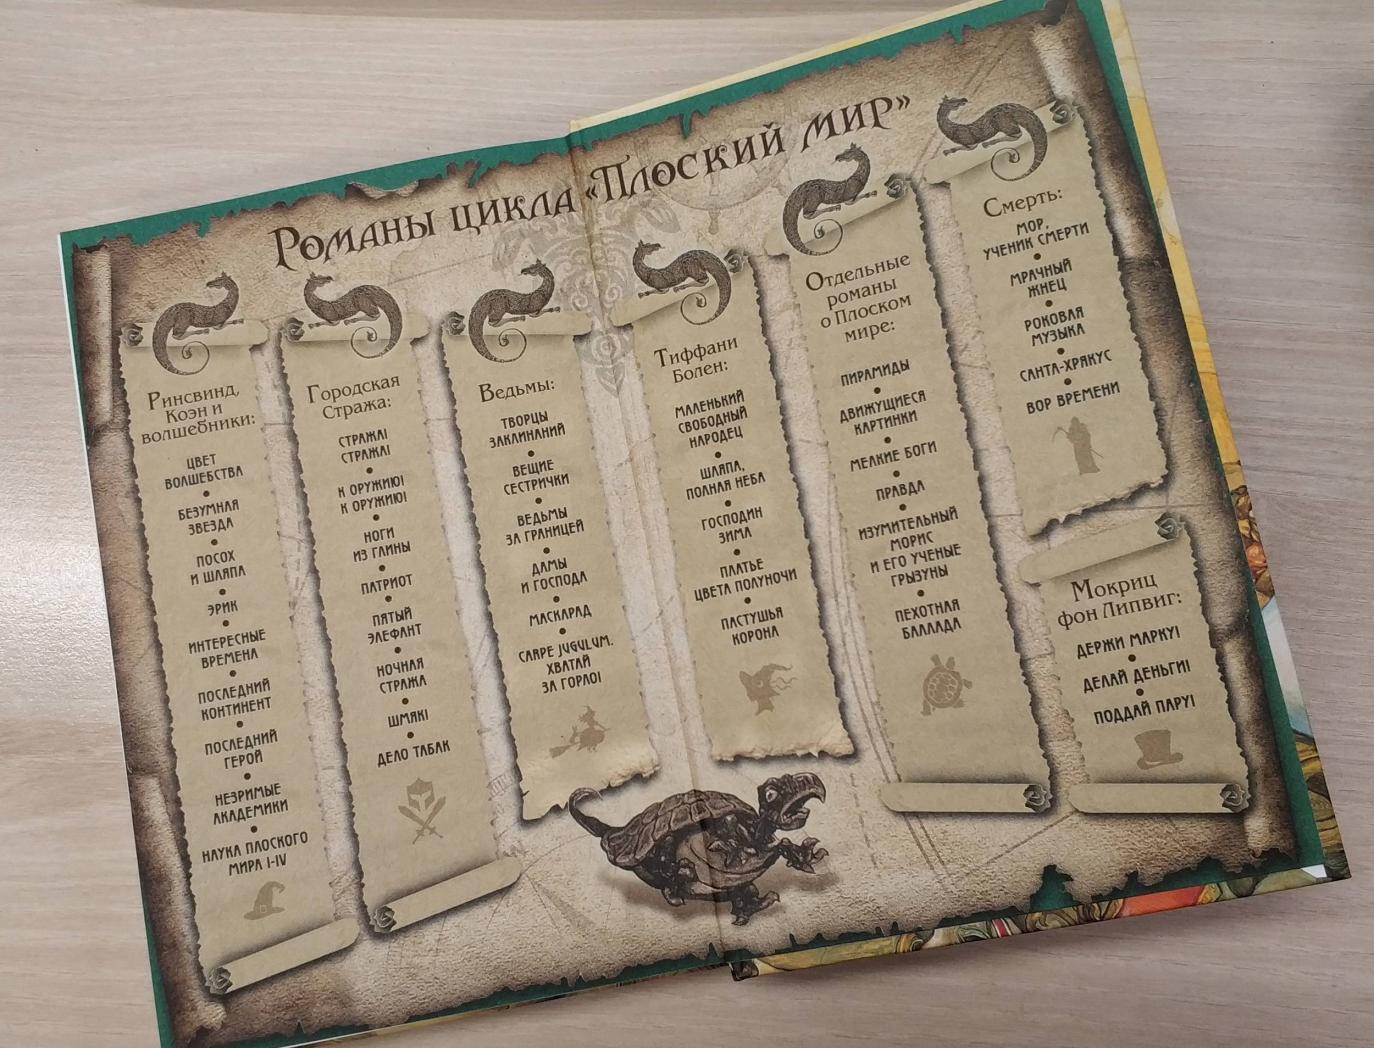 Романы цикла «Плоский мир»
Ринсвинд,
Коэн и
волшебники:
ЦВЕТ
ВОЛШЕБСТВА
БЕЗУМНАЯ
ЗВЕЗДА
ПОСОХ
И ШЛЯПА
ЭРИК
ИНТЕРЕСНЫЕ
ВРЕМЕНА
ПОСЛЕДНИЙ
КОНТИНЕНТ
ПОСЛЕДНИЙ
ГЕРОЙ
НЕЗРИМЫЕ
АКАДЕМИКИ
НАУКА ПЛОСКОГО
МИРА I-IV
Городская
Стража:
СТРАЖА!
СТРАЖА!
К ОРУЖИЮ!
К ОРУЖИЮ!
НОГИ
ИЗ ГЛИНЫ
ПАТРИОТ
ПЯТЫЙ
ЭЛЕФАНТ
НОЧНАЯ
СТРАЖА
ШМЯК!
ДЕЛО ТАБАК
Ведьмы:
ТВОРЦЫ
ЗАКЛИНАНИЙ
ВЕЩИЕ
СЕСТРИЧКИ
ВЕДЬМЫ
ЗА ГРАНИЦЕЙ
ДАМЫ
И ГОСПОДА
МАСКАРАД
CARPE JUGULUM.
ХВАТАЙ
ЗА ГОРЛО!
Тиффани
Болен:
МАЛЕНЬКИЙ
СВОБОДНЫЙ
НАРОДЕЦ
ШЛЯПА,
ПОЛНАЯ НЕБА
ГОСПОДИН
ЗИМА
ПЛАТЬЕ
ЦВЕТА ПОЛУНОЧИ
ПАСТУШЬЯ
КОРОНА
Отдельные
романы
о Плоском
мире:
ПИРАМИДЫ
ДВИЖУЩИЕСЯ
КАРТИНКИ
МЕЛКИЕ БОГИ
ПРАВДА
ИЗУМИТЕЛЬНЫЙ
МОРИС
И ЕГО УЧЕНЫЕ
ГРЫЗУНЫ
ПЕХОТНАЯ
БАЛЛАДА
Смерть:
МОР,
УЧЕНИК СМЕРТИ
МРАЧНЫЙ
ЖНЕЦ
РОКОВАЯ
МУЗЫКА
САНТА-ХРЯКУС
ВОР ВРЕМЕНИ
Мокриц
фон Липвиг:
ДЕРЖИ МАРКУ!
ДЕЛАЙ ДЕНЬГИ!
ПОДДАЙ ПАРУ!